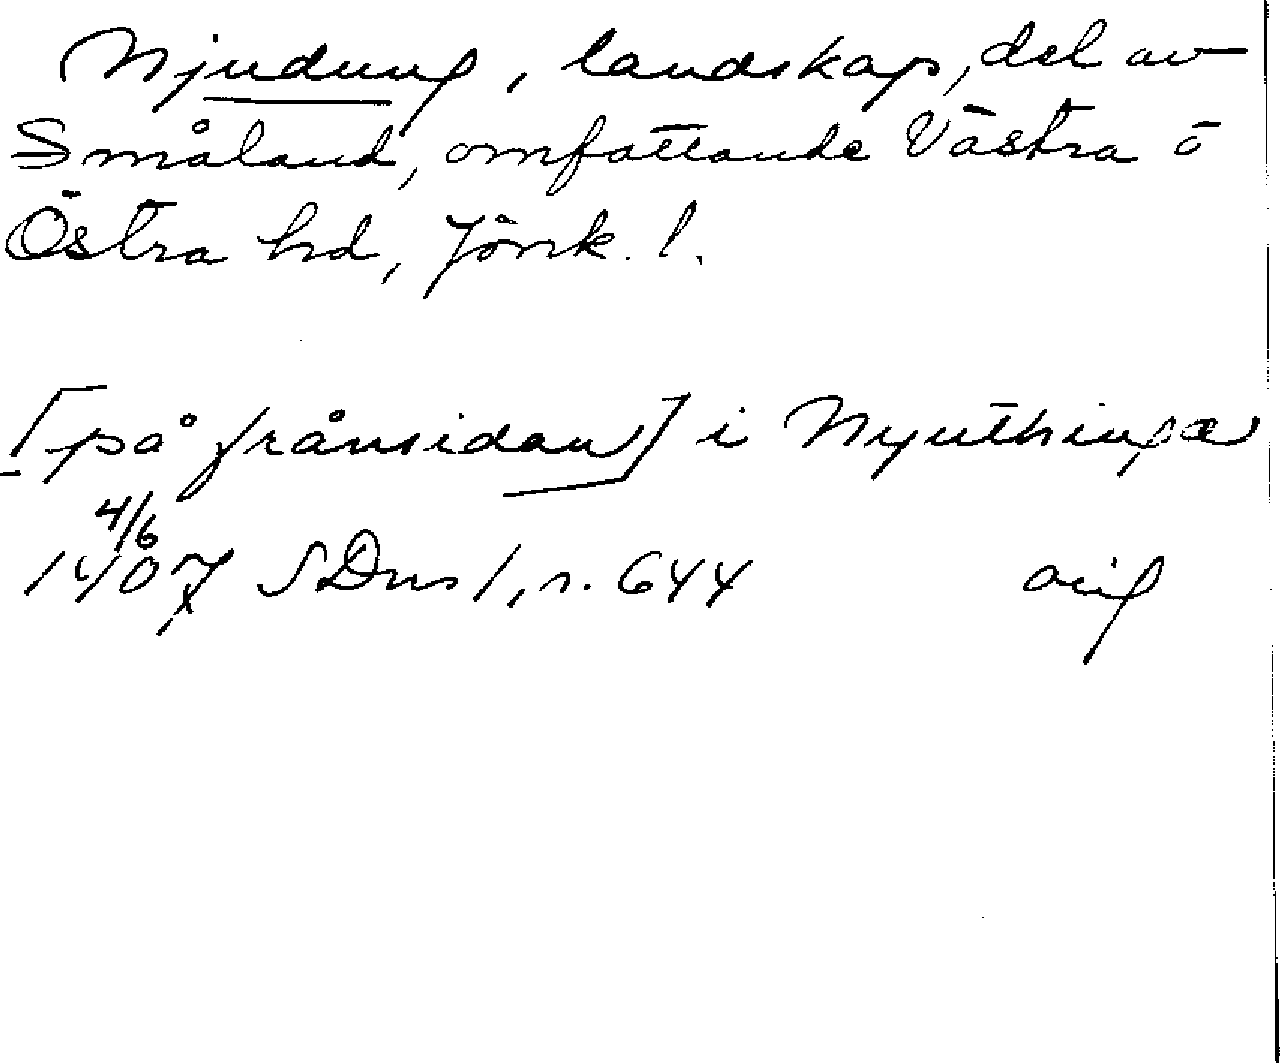 Njudung, landskap, del av
Småland, omfattande Västra o
Östra hd, Jönk. l.
[på frånsidan] i Nyuthingæ
4/6
1407 SDns 1, n. 644 orig